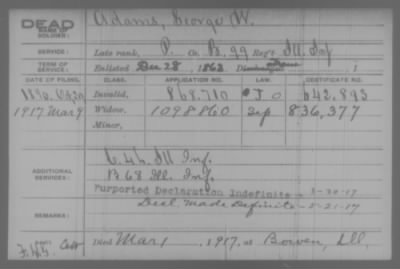 DEAD
NAME OF SOLDIER:
Adams, George W.
SERVICE:
Late rank, P. Co. B, 99 Reg't Ill. Inf
TERM OF SERVICE:
Enlisted Dec 28, 1863 Discharged , 1
DATE OF FILING. CLASS. APPLICATION NO. LAW. CERTIFICATE NO.
1890 Invalid, 868,710 J 0 642,893
1917 Mar 9 Widow, 1098860 Sep 836,377
Minor,
ADDITIONAL SERVICES:
Ill Inf.
B 68 Ill. Inf.
Purported Declaration Indefinite - 3-30-17
Decl. Made Definite - 5-21-17
REMARKS:
Died Mar 1, 1917, at Bowen, Ill.